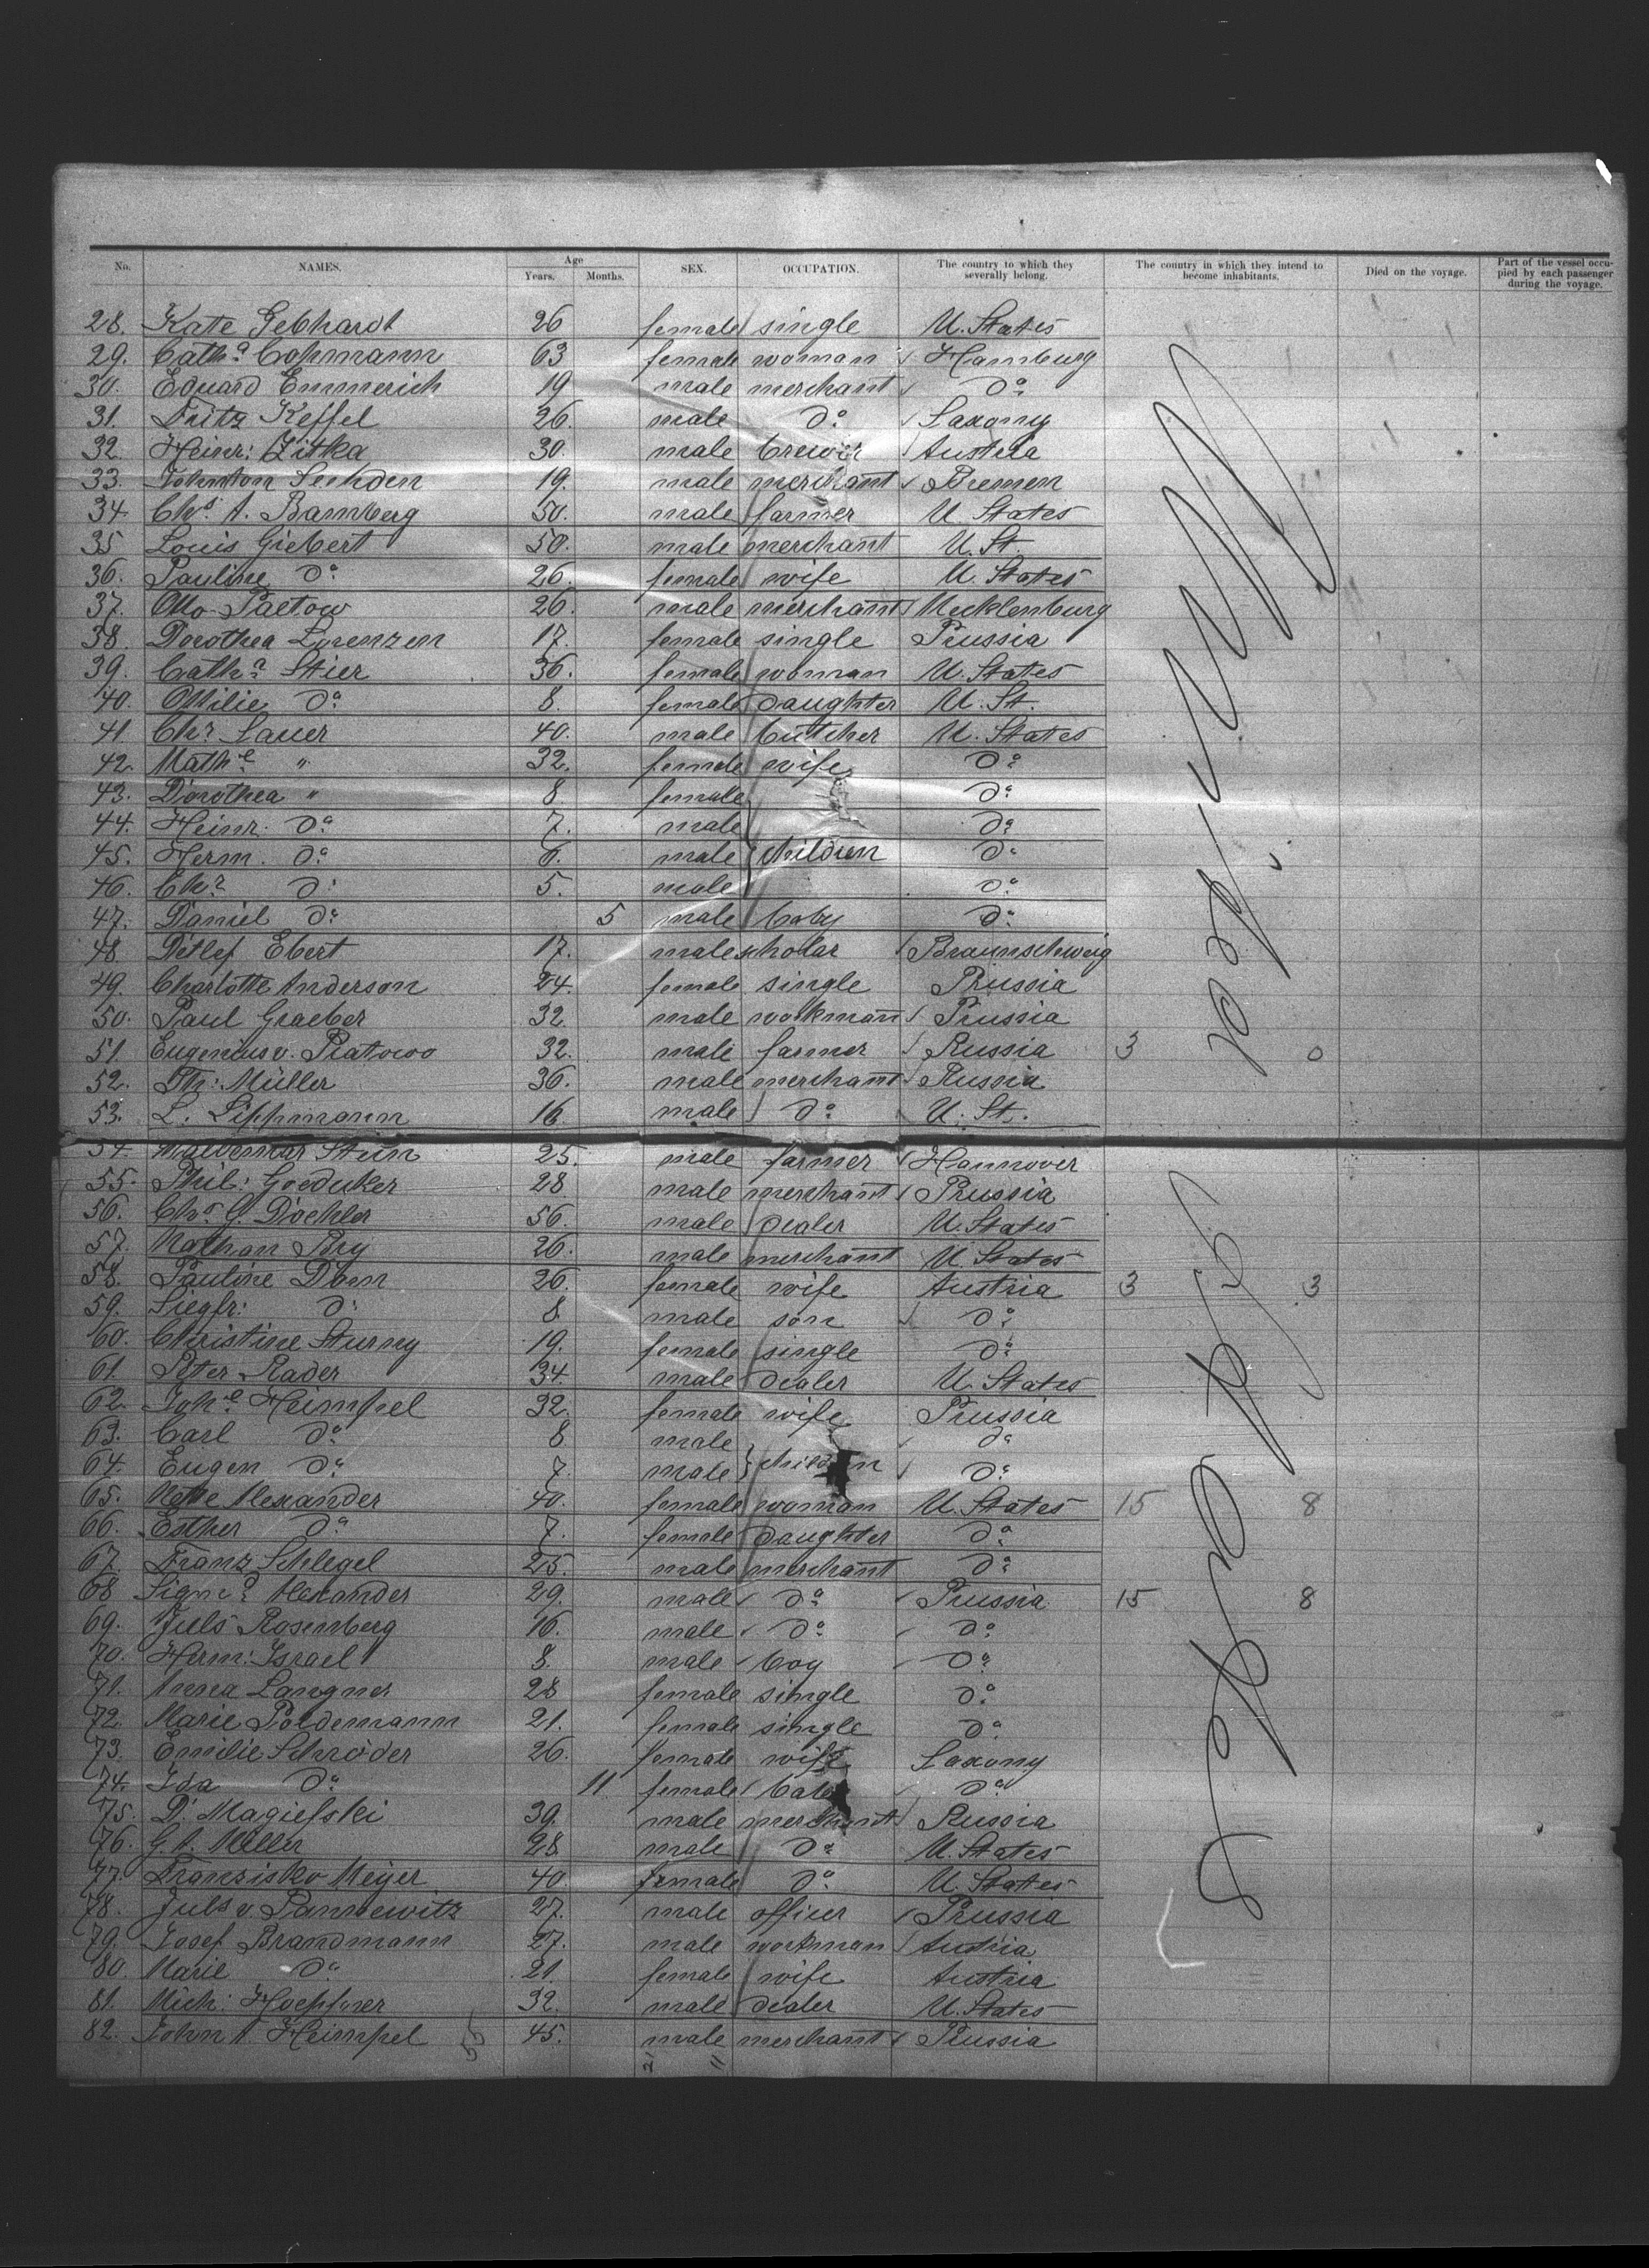 No. NAMES. Age Years. Months. SEX. OCCUPATION. The country to which they severally belong. The country in which they intend to become inhabitants. Died on the voyage. Part of the vessel occupied by each passenger during the voyage.
28. Kate Gebhardt 26 female single U. States
29. Cath.ª Cohmann 63 female woman Hamburg
30. Eduard Emmerich 19 male merchant dº
31. Fritz Keffel 26. male dº Saxony
32. Heinr: Zitka 30. male brewer Austria
33. Johnton 19. male merchant Bremen
34. Chs. A. Bamberg 50. male farmer U States
35 Louis Giebert 50. male merchant U. St.
36. Pauline dº 26. female wife U. States
37. Otto Paetow 26. male merchant Mecklenburg
38. Dorothea Lorenzen 17. female single Prussia
39. Cath.ª Stier 36. female woman U. States
40. Ottilie dº 8. female daughter U. St.
41. Chr. Sauer 40. male butcher U. States
42. Math.e " 32. female wife dº
43. Dorothea " 8. female dº
44. Heinr. dº 7. male dº
45. Herm. dº 6. male children dº
46. Chr. dº 5. male dº
47. Daniel dº 5 male baby dº
48. Detlef Ebert 17. male scholar Braunschweig
49. Charlotte Anderson 24. female single Prussia
50. Paul Graeber 32 male workmann Prussia
51. Eugenius v. Piatowo 32. male farmer Russia 3 0
52. Th: Müller 36. male merchant Russia
53. L. Lippmann 16. male dº U. St.
54. Waldemar Stein 25. male farmer Hannover
55. Phil: Goeduker 28 male merchant Prussia
56. Chs. G. Dochler 56. male dealer U. States
57. Nathan Bry 26. male merchant U. States
58. Pauline Dorn 26. female wife Austria 3 3
59. Siegfr: dº 8. male son dº
60. Christine Sturny 19. female single dº
61. Peter Rader 34. male dealer U. States
62. Joh.e Heimpel 32. female wife Prussia
63. Carl dº 8 male dº
64. Eugen dº 7. male children dº
65. Nette Alexander 40. female woman U. States 15 8
66. Esther dº 7. female daughter dº
67. Franz Schlegel 25. male merchant dº
68 Sigm.d Alexander 29. male dº Prussia 15 8
69. Juls Rosenberg 16. male dº dº
70. Herm: Israel 8. male boy dº
71. Anna Langner 28 female single dº
72. Marie Poldemann 21. female single dº
73. Emilie Schröder 26. female wife Saxony
74. Ida dº 11 female baby dº
75. D. Magiefski 39. male merchant Russia
76. G. A. Miller 28 male dº U. States
77. Franziska Meyer 40. female dº U. States
78. Juls v. Pannewitz 27. male officer Prussia
79. Josef Brandmann 27. male workman Austria
80. Marie dº 21. female wife Austria
81. Mich: Hoepfner 32. male dealer U. States
82. John A. Heimpel 45. male merchant Prussia
55 21 11